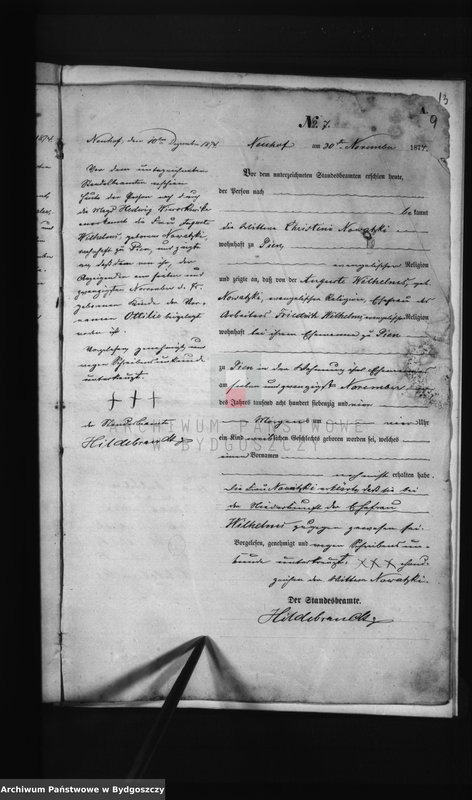 13
A.
9
1874.
Neuhof, den 10ten Dezember 1874
Vor dem unterzeichneten
Standesbeamten erschien
heute der Person nach durch
die Magd Hedwig
anerkannt die Frau Auguste
Wilhelmi, geboren Nowatzki,
wohnhaft zu Pien, und zeigte
an, daß dem von ihr, der
Anzeigenden am sieben und
zwanzigsten November d. Js.
geborenen Kinde der Vor-
namen Ottilie beigelegt
worden ist.
Vorgelesen, genehmigt und
wegen Schreibensunkunde
unterkreuzt.
† † †
der Standesbeamte
Hildebrandt
No. 7.
Neuhof am 30ten November 1874.
Vor dem unterzeichneten Standesbeamten erschien heute,
der Person nach
bekannt
die Wittwe Christine Nowatzki
wohnhaft zu Pien,
evangelischer Religion
und zeigte an, daß von der Auguste Wilhelmi, geb.
Nowatzki, evangelischer Religion, Ehefrau des
Arbeiters Friedrich Wilhelmi, evangelischer Religion
wohnhaft bei ihrem Ehemanne zu Pien
zu Pien in der Wohnung ihres Ehemannes
am sieben und zwanzigsten November
des Jahres tausend acht hundert siebenzig und vier
Morgens um Uhr
ein Kind weiblichen Geschlechts geboren worden sei, welches
einen Vornamen
noch nicht erhalten habe.
Die Frau Nowatzki erklärte, daß sie bei
der Niederkunft der Ehefrau
Wilhelmi zugegen gewesen sei.
Vorgelesen, genehmigt und wegen Schreibens un-
kunde unterkreuzt. ××× Hand-
zeichen der Wittwe Nowatzki.
Der Standesbeamte.
Hildebrandt
ARCHIWUM PAŃSTWOWE
W BYDGOSZCZY
Archiwum Państwowe w Bydgoszczy